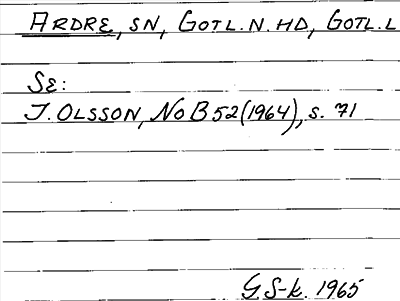 ARDRE, SN, GOTL.N. HD, GOTL.L
SE:
I. OLSSON, NoB 52 (1964), s. 71
G S-k. 1965